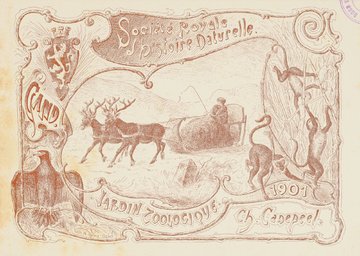 Société Royale
d'Histoire Naturelle.
GAND
JARDIN ZOOLOGIQUE.
1901
Ch. Capepsel.